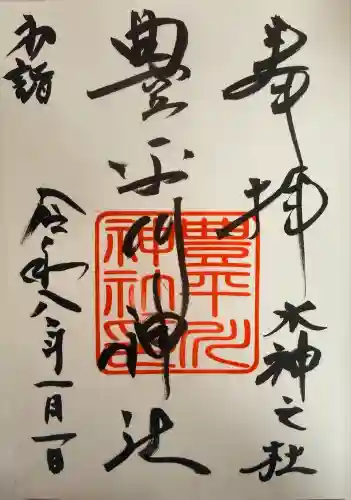 奉拝
水神之社
豊平川神社
豊平川
神社印
初詣
令和八年一月一日